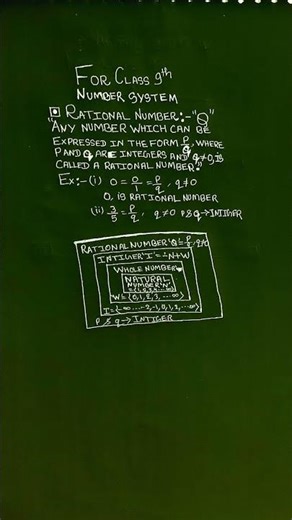 FOR CLASS 9th
NUMBER SYSTEM
RATIONAL NUMBER:-"Q"
"ANY NUMBER WHICH CAN BE
EXPRESSED IN THE FORM P/q, WHERE
P AND q ARE INTEGERS AND q≠0, IS
CALLED A RATIONAL NUMBER"
Ex:-(i) 0=0/1=P/q, q≠0
0, IS RATIONAL NUMBER
(ii) 3/5=P/q, q≠0 P&q→INTIGER
RATIONAL NUMBER'Q'=P/q, q≠0
INTIGER'I'=-N+W
WHOLE NUMBER
NATURAL
NUMBER'N'
W={0,1,2,3,...∞}
I={-∞...-2,-1,0,1,2,...∞}
P & q→INTIGER